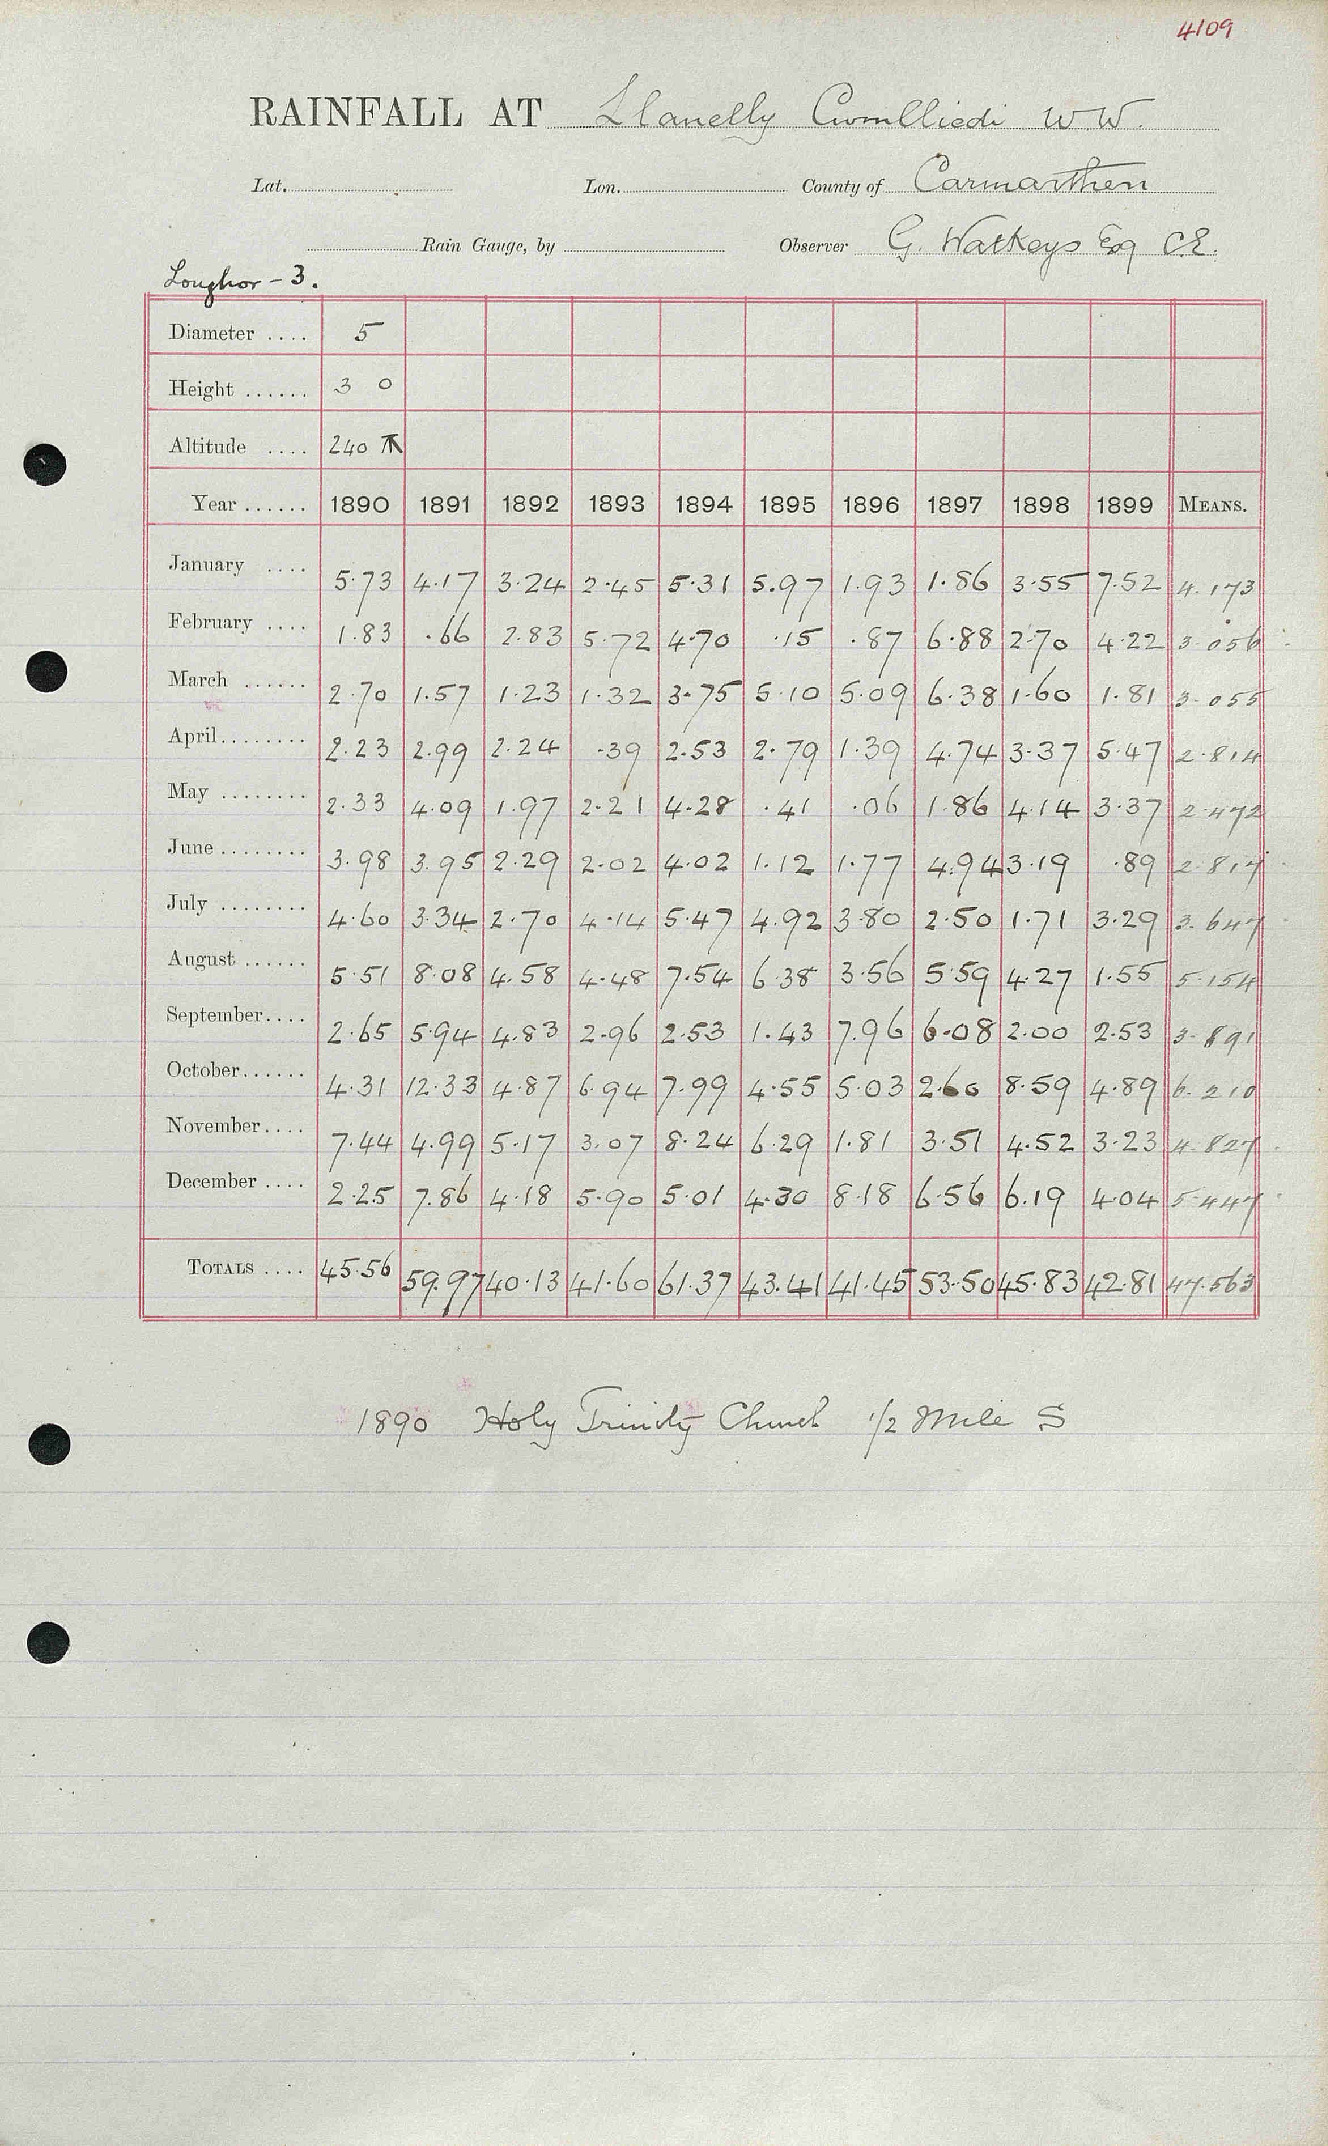 4109
RAINFALL AT Llanelly Cwmlliedi W.W.
Lat. Lon. County of Carmarthen
Rain Gauge, by Observer G. Watkeys Esq C.E.
Loughor - 3.
Diameter .... 5
Height ...... 3 0
Altitude .... 240
Year ...... 1890 1891 1892 1893 1894 1895 1896 1897 1898 1899 MEANS.
January .... 5.73 4.17 3.24 2.45 5.31 5.97 1.93 1.86 3.55 7.52 4.173
February .... 1.83 .66 2.83 5.72 4.70 .15 .87 6.88 2.70 4.22 3.056
March ...... 2.70 1.57 1.23 1.32 3.75 5.10 5.09 6.38 1.60 1.81 3.055
April ........ 2.23 2.99 2.24 .39 2.53 2.79 1.39 4.74 3.37 5.47 2.814
May ........ 2.33 4.09 1.97 2.21 4.28 .41 .06 1.86 4.14 3.37 2.472
June ........ 3.98 3.95 2.29 2.02 4.02 1.12 1.77 4.94 3.19 .89 2.817
July ........ 4.60 3.34 2.70 4.14 5.47 4.92 3.80 2.50 1.71 3.29 3.647
August ...... 5.51 8.08 4.58 4.48 7.54 6.38 3.56 5.59 4.27 1.55 5.154
September .... 2.65 5.94 4.83 2.96 2.53 1.43 7.96 6.08 2.00 2.53 3.891
October ...... 4.31 12.33 4.87 6.94 7.99 4.55 5.03 2.60 8.59 4.89 6.210
November .... 7.44 4.99 5.17 3.07 8.24 6.29 1.81 3.51 4.52 3.23 4.827
December .... 2.25 7.86 4.18 5.90 5.01 4.30 8.18 6.56 6.19 4.04 5.447
TOTALS .... 45.56 59.97 40.13 41.60 61.37 43.41 41.45 53.50 45.83 42.81 47.563
1890 Holy Trinity Church 1/2 Mile S